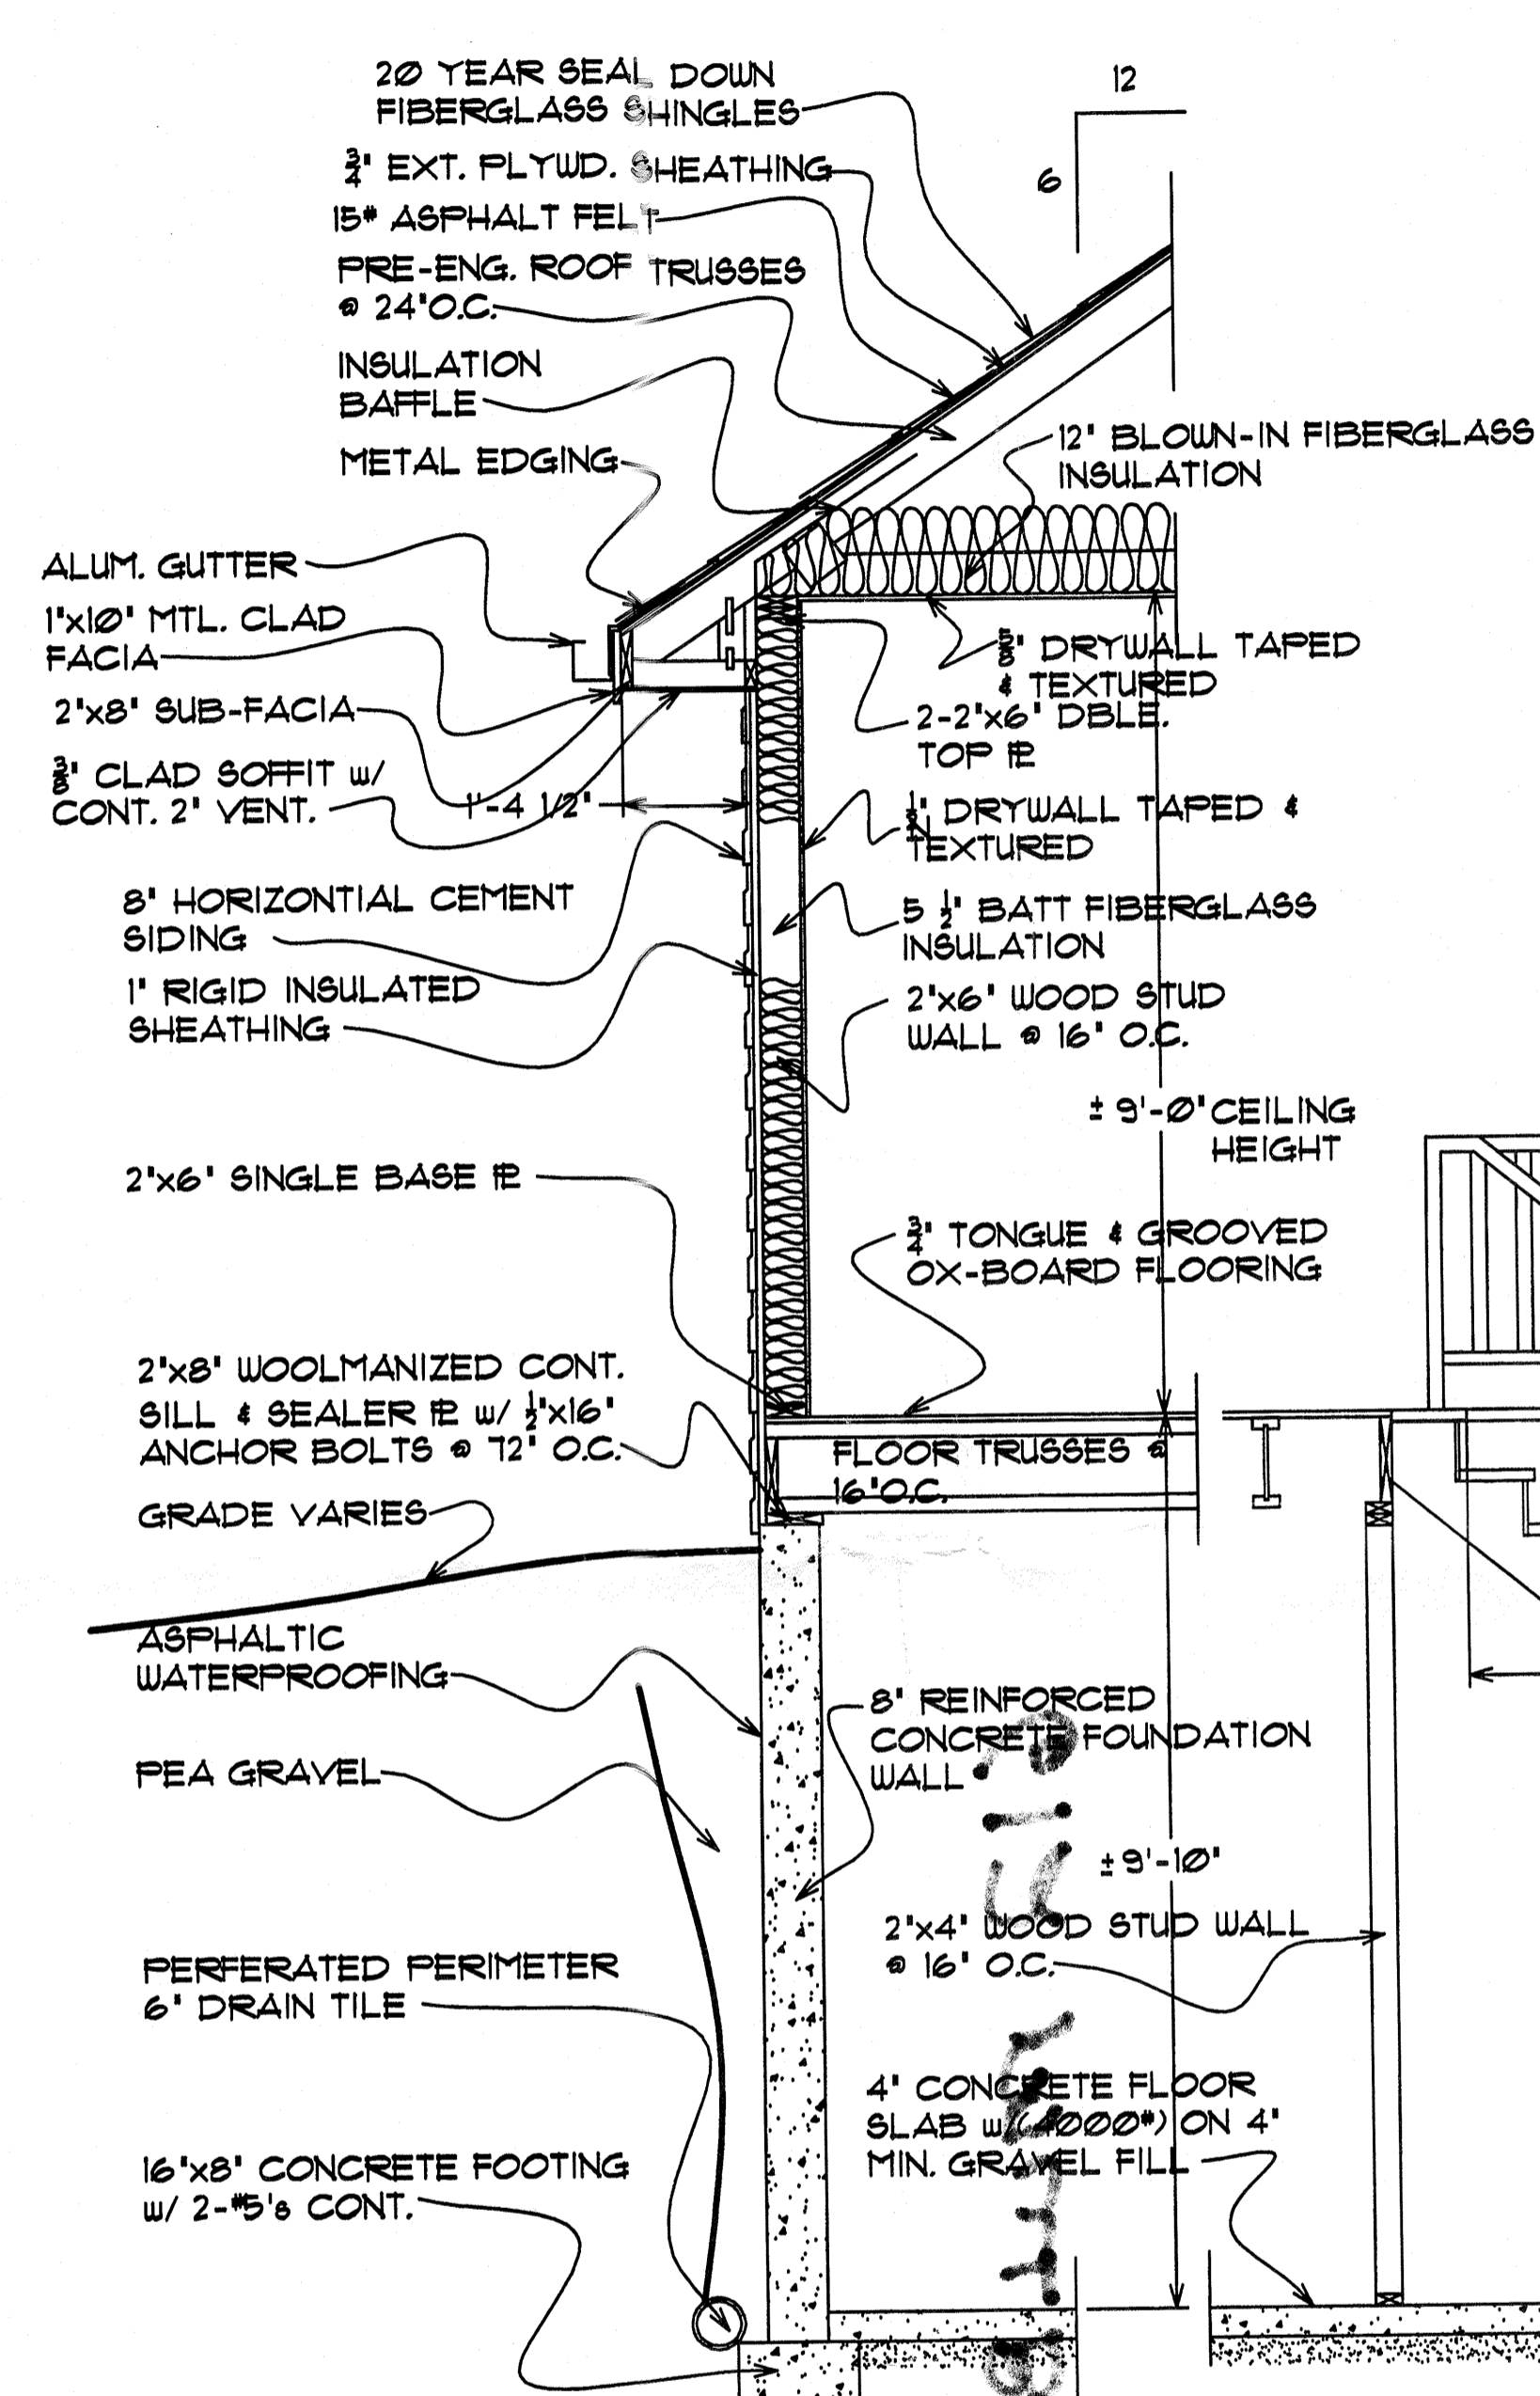 20 YEAR SEAL DOWN
FIBERGLASS SHINGLES
3/4" EXT. PLYWD. SHEATHING
15# ASPHALT FELT
PRE-ENG. ROOF TRUSSES
@ 24"O.C.
INSULATION
BAFFLE
METAL EDGING
12
6
12" BLOWN-IN FIBERGLASS
INSULATION
ALUM. GUTTER
1"x10" MTL. CLAD
FACIA
2"x8" SUB-FACIA
3/8" CLAD SOFFIT w/
CONT. 2" VENT.
1'-4 1/2"
5/8" DRYWALL TAPED
& TEXTURED
2-2"x6" DBLE.
TOP PL
DRYWALL TAPED &
TEXTURED
8" HORIZONTIAL CEMENT
SIDING
1" RIGID INSULATED
SHEATHING
5 1/2" BATT FIBERGLASS
INSULATION
2"x6" WOOD STUD
WALL @ 16" O.C.
± 9'-0" CEILING
HEIGHT
2"x6" SINGLE BASE PL
3/4" TONGUE & GROOVED
OX-BOARD FLOORING
2"x8" WOOLMANIZED CONT.
SILL & SEALER PL w/ 1/2"x16"
ANCHOR BOLTS @ 72" O.C.
FLOOR TRUSSES @
16"O.C.
GRADE VARIES
ASPHALTIC
WATERPROOFING
PEA GRAVEL
8" REINFORCED
CONCRETE FOUNDATION
WALL
± 9'-10"
2"x4" WOOD STUD WALL
@ 16" O.C.
PERFERATED PERIMETER
6" DRAIN TILE
4" CONCRETE FLOOR
SLAB w/(4000#) ON 4"
MIN. GRAVEL FILL
16"x8" CONCRETE FOOTING
w/ 2-#5's CONT.